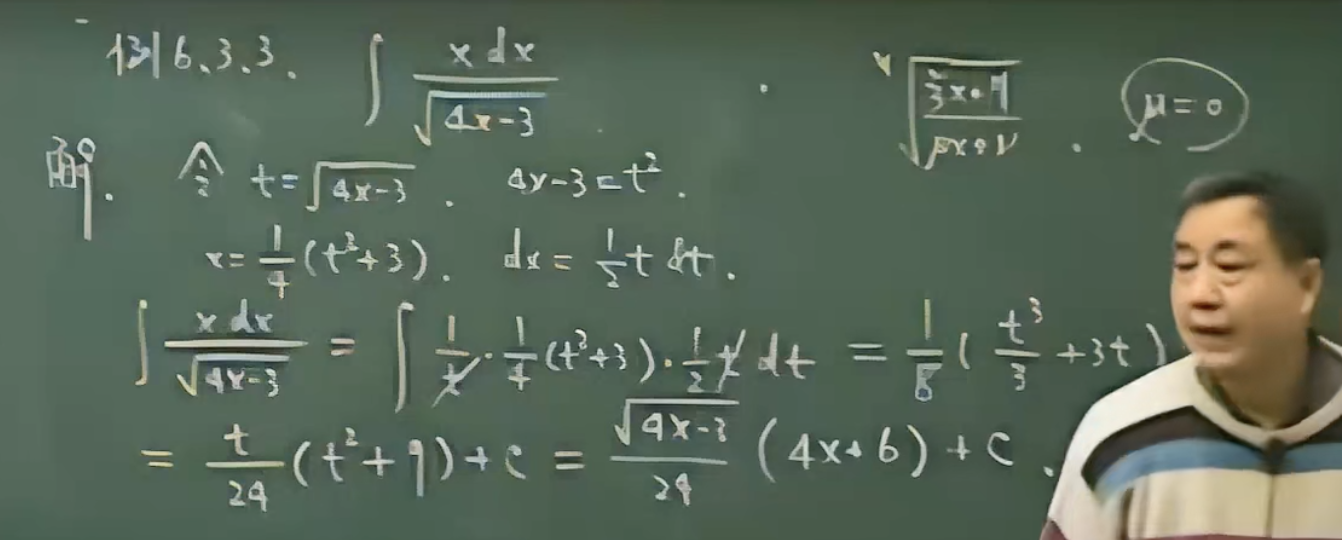 例6.3.3. ∫ x dx / √(4x-3)
μ=0
解. 令 t=√(4x-3). 4x-3=t².
x=1/4(t²+3). dx=1/2 t dt.
∫ x dx / √(4x-3) = ∫ 1/t · 1/4(t²+3) · 1/2 t dt = 1/8 ( t³/3 +3t)
= t/24 (t²+9)+C = √(4x-3)/24 (4x+6)+C.